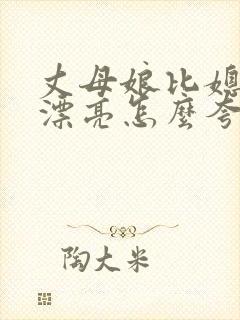 丈母娘比媳
漂亮怎麼夸
陶大米